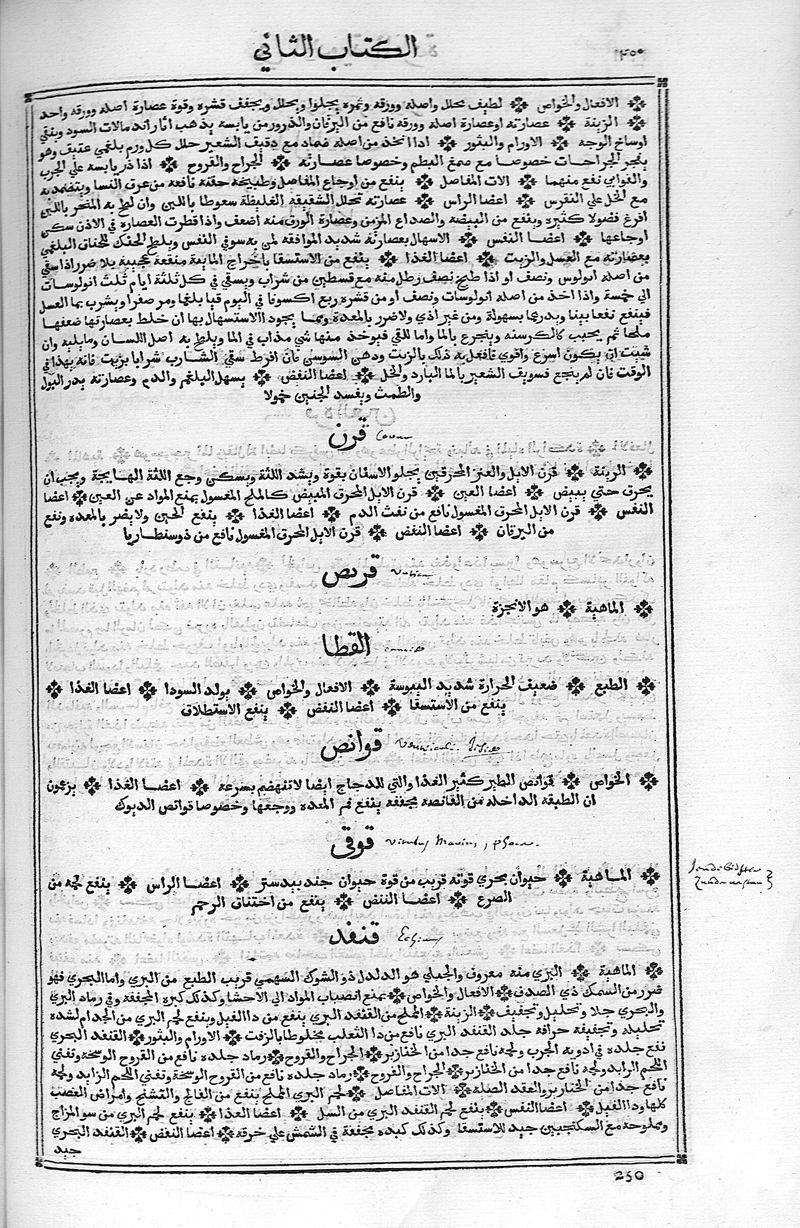 الكتاب الثاني
الافعال والخواص ❖ لطيف محلل واصله وورقه وثمره يجلوا ويحلل ويجفف قشره وقوة عصارة اصله وورقه واحد
❖ الزينة ❖ عصارته او عصارة اصله وورقه نافع من اليرقان والذرور من يابسه يذهب اثار اندمالات السود وينقي
اوساخ الوجه ❖ الاورام والبثور ❖ اذا اتخذ من اصله ضماد مع دقيق الشعير حلل كل ورم بلغمي عتيق وهو
يفجر الجراحات خصوصا مع صمغ البطم وخصوصا عصارته ❖ الجراح والقروح ❖ اذا ذر يابسه علي الجرب
والقوابي نفع منهما ❖ الات المفاصل ❖ ينفع من اوجاع المفاصل وطبيخه حقنة نافعة من عرق النسا ويتضمد به
مع الخل علي النقرس ❖ اعضا الراس ❖ عصارته تحلل الشقيقة الغليظة سعوطا باللبن وان لطخ به المنخر باللبن
افرغ فضولا كثيرة وينفع من البيضة والصداع المزمن وعصارة الورق منه اضعف واذا قطرت العصارة في الاذن سكن
اوجاعها ❖ اعضا النفس ❖ الاسهال بعصارته شديد الموافقة لمن به سو في النفس ويلطخ الحنك للخناق البلغمي
بعصارته مع العسل والزيت ❖ اعضا الغذا ❖ ينفع من الاستسقا باخراج المايية منفعة عجيبة بلا ضرر اذا سقي
من اصله ابولوس ونصف او اذا طبخ نصف رطل منه مع قسطين من شراب ويسقي في كل ثلثة ايام ثلث ابولوسات
الي خمسة واذا اخذ من اصله ابولوسات ونصف او من قشره ربع اكسونا في اليوم قيا بلغما ومر صفرا ويشرب بما العسل
فينفع نفعا بينا ويدر بها بسهولة ومن غير اذي ولا ضرر بالمعدة ومما يجود الاستسهال بها ان خلط بعصارتها ضعفها
ملحا ثم يحبب كالكرسنه ويتجرع بالما واما للقي فيوخذ منها شي مذاب في الما ويلطخ به اصل اللسان وما يليه وان
شيت ان يكون اسرع واقوي فافعل به ذلك بالزيت ودهن السوسن فان افرط سقي الشارب شرابا بزيت فانه يهدا في
الوقت فان لم ينجع فسويق الشعير بالما البارد والخل ❖ اعضا النفض ❖ يسهل البلغم والدم وعصارته يدر البول
والطمث ويفسد الجنين حمولا
قرن Cornu
❖ الزينة ❖ قرن الايل والعنز المحرقين يجلو الاسنان بقوة ويشد اللثة ويسكن وجع اللثة الهايجة ويجب ان
يحرق حتي يبيض ❖ اعضا العين ❖ قرن الايل المحرق المبيض كالملح المغسول يمنع المواد عن العين ❖ اعضا
النفس ❖ قرن الايل المحرق المغسول نافع من نفث الدم ❖ اعضا الغذا ❖ ينفع الحين ولا يضر بالمعدة ونفع
من اليرقان ❖ اعضا النفض ❖ قرن الايل المحرق المغسول نافع من ذوسنطاريا
قريص
❖ الماهية ❖ هو الانجزة
القطا
❖ الطبع ❖ ضعيف الحرارة شديد اليبوسة ❖ الافعال والخواص ❖ يولد السودا ❖ اعضا الغذا ❖
ينفع من الاستسقا ❖ اعضا النفض ❖ ينفع الاستطلاق
قوانص
❖ الخواص ❖ قوانص الطير كثير الغذا والتي للدجاج ايضا لا تنهضم بسرعه ❖ اعضا الغذا ❖ يزعمون
ان الطبقة الداخلة من القانصة مجففة ينفع فم المعدة ووجعها وخصوصا قوانص الديوك
قوقي Vitulus Marinus, phoca.
❖ الماهية ❖ حيوان بحري قوته قريب من قوة حيوان جند بيدستر ❖ اعضا الراس ❖ ينفع لحمه من
الصرع ❖ اعضا النفض ❖ ينفع من اختناق الرحم
قنفد Echinus
❖ الماهية ❖ البري منه معروف والجبلي هو الدلدل ذو الشوك السهمي قريب الطبع من البري واما البحري فهو
ضرر من السمك ذي الصدف ❖ الافعال والخواص ❖ يمنع انصباب المواد الي الاحشا وكذلك كبده المجففة وفي رماد البري
والبحري جلا وتحليل وتجفيف ❖ الزينة ❖ الملح من القنفد البري ينفع من دا الفيل وينفع لحم البري من الجدام لشدة
تحليله وتجفيفه حراقه جلد القنفد البري نافع من دا الثعلب مخلوطا بالزفت ❖ الاورام والبثور ❖ القنفد البحري
نفع جلده في ادوية الجرب ولحمه نافع جدا من الخنازير ❖ الجراح والقروح ❖ رماد جلده نافع من القروح الوسخة وتفني
اللحم الزايد ولحمه نافع جدا من الخنازير ❖ الجراح والقروح ❖ رماد جلده نافع من القروح الوسخة وتفني اللحم الزايد ولحمه
نافع جدا من الخنازير والعقد الصلبه ❖ الات المفاصل ❖ لحم البري المملح ينفع من الفالج والتشنج وامراض العصب
كلها ودا الفيل ❖ اعضا النفس ❖ ينفع لحم القنفد البري من السل ❖ اعضا الغذا ❖ ينفع لحم البري من سو المزاج
ومملوحه مع السكنجبين جيد للاستسقا وكذلك كبده مجففة في الشمس علي خرقه ❖ اعضا النفض ❖ القنفد البحري
جيد
250